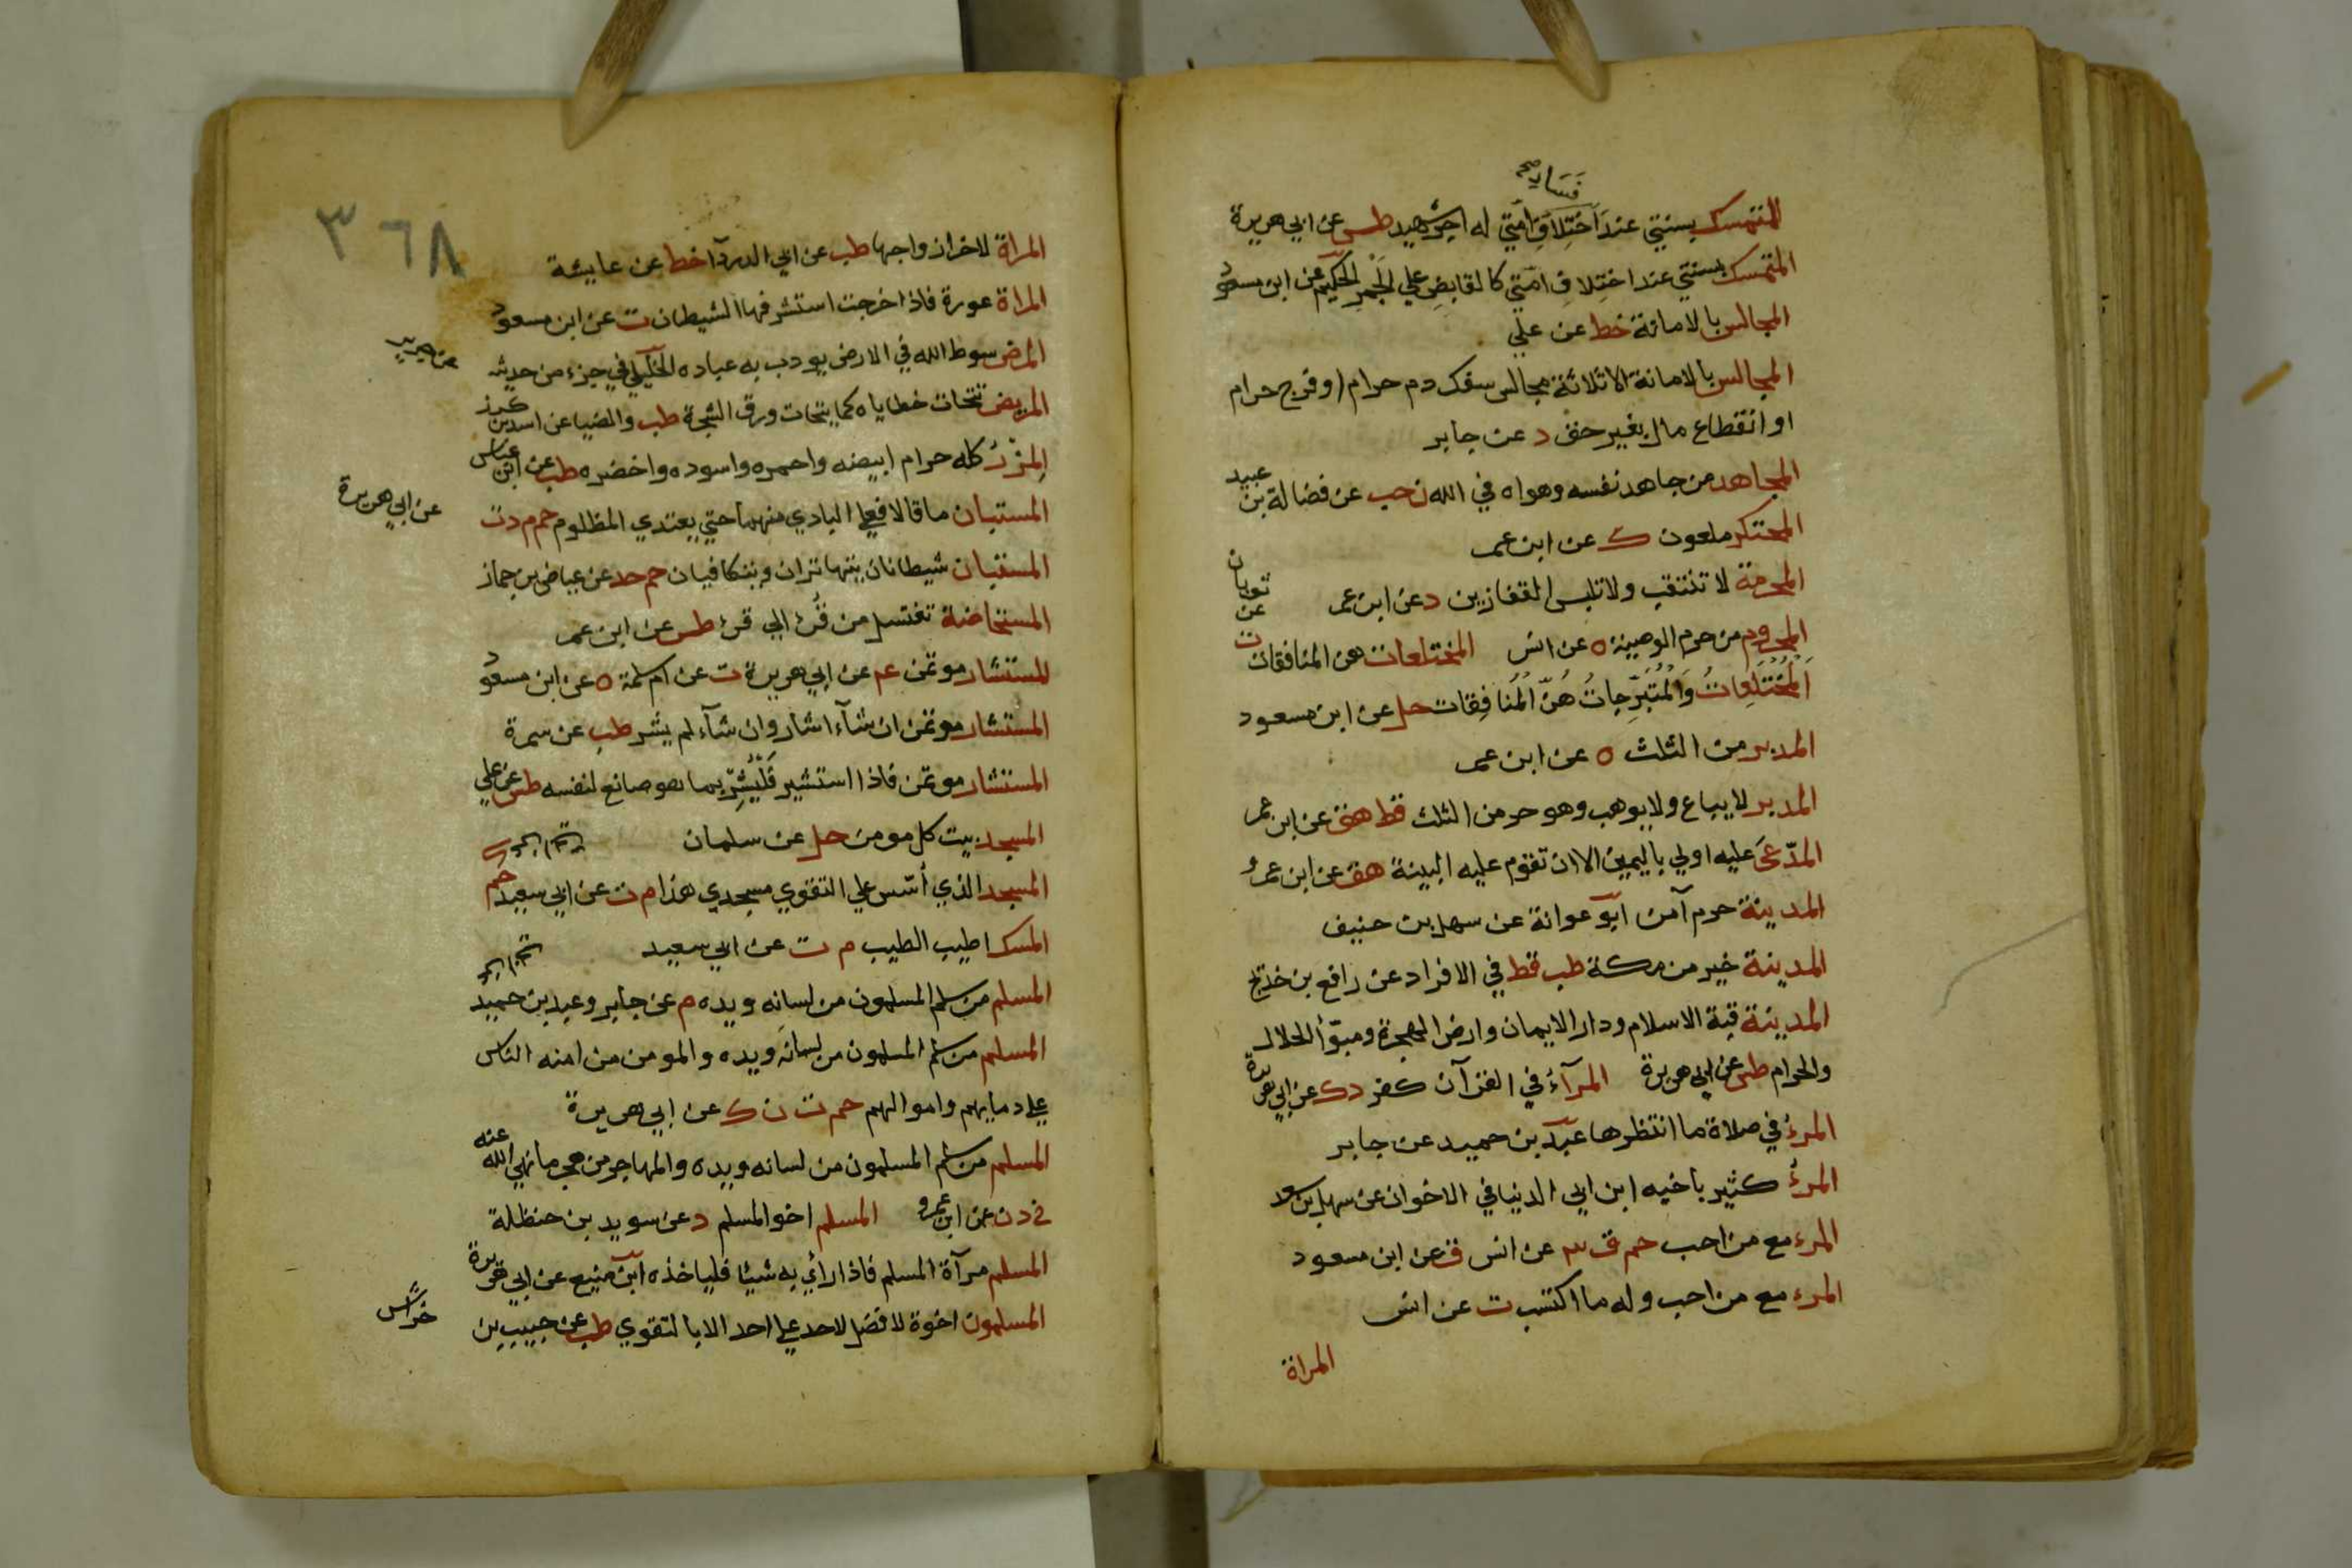 فساد صح
المتمسك بسنتي عند اختلاف امتي له اجر شهيد طس عن ابي هريرة
المتمسك بسنتي عند اختلاف امتي كالقابض علي الجمر الحكيم عن ابن مسعود
المجالس بالامانة خط عن علي
المجالس بالامانة الا ثلاثة مجالس سفك دم حرام او فرج حرام
او انقطاع مال بغير حق د عن جابر
المجاهد من جاهد نفسه وهواه في الله ت حب عن فضالة بن عبيد
المحتكر ملعون ك عن ابن عمر
المحرمة لا تنتقب ولا تلبس القفازين د عن ابن عمر
المحروم من حرم الوصية ه عن انس المختلعات هن المنافقات ت عن ثوبان
اَلْمُخْتَلِعَاتُ وَالْمُتَبَرِّجَاتُ هُنَّ الْمُنَافِقَات حل عن ابن مسعود
المدبر من الثلث ه عن ابن عمر
المدبر لا يباع ولا يوهب وهو حر من الثلث قط هق عن ابن عمر
المدّعَى عليه اولي باليمين الا ان تقوم عليه البينة هق عن ابن عمرو
المدينة حرم آمن ابو عوانة عن سهل بن حنيف
المدينة خير من مكة طب قط في الافراد عن رافع بن خديج
المدينة قبة الاسلام ودار الايمان وارض الهجرة ومبوّأ الحلال
والحرام طس عن ابي هريرة المرآء في القرآن كفر د ك عن ابي هريرة
المرء في صلاة ما انتظرها عبد بن حميد عن جابر
المرء كثير باخيه ابن ابي الدنيا في الاخوان عن سهل بن سعد
المرء مع من احب حم ق ٣ عن انس ق عن ابن مسعود
المرء مع من احب وله ما اكتسب ت عن انس
المراة
٣٦٨
المراة لاخر ازواجها طب عن ابي الدردآ خط عن عايشة
المراة عورة فاذا خرجت استشرفها الشيطان ت عن ابن مسعود
المرض سوط الله في الارض يودب به عباده الخليلي في جزء من حديثه
عن جرير
المريض تتحات خطاياه كما يتحات ورق الشجرة طب والضيا عن اسد بن كرز
المزر كله حرام ابيضه واحمره واسوده واخضره طب عن ابن عباس
المستبان ما قالا فعلي البادي منهما حتي يعتدي المظلوم حم م د ت
عن ابي هريرة
المستبان شيطانان يتهاتران ويتكاذبان حم خد عن عياض بن حماز
المستحاضة تغتسل من قُرء الي قرء طس عن ابن عمر
المستشار موتمن عم عن ابي هريرة ت عن ام سلمة ه عن ابن مسعود
المستشار موتمن ان شآء اشار وان شآء لم يشر طب عن سمرة
المستشار موتمن فاذا استشير فَلْيُشِرْ بما هو صانع لنفسه طس عن علي
المسجد بيت كل مومن حل عن سلمان
المسجد الذي أسّس علي التقوي مسجدي هذا م ت عن ابي سعيد حم
المسك اطيب الطيب م ت عن ابي سعيد
المسلم من سلم المسلمون من لسانه ويده م عن جابر وعبد بن حميد
المسلم من سلم المسلمون من لسانه ويده والمومن من امنه الناس
علي دمايهم واموالهم حم ت ن ك عن ابي هريرة
المسلم من سلم المسلمون من لسانه ويده والمهاجر من هجر ما نهي الله عنه
خ د ن عن ابن عمرو المسلم اخو المسلم د عن سويد بن حنظلة
المسلم مرآة المسلم فاذا رأي به شيئا فلياخذه ابن منيع عن ابي هريرة
المسلمون اخوة لا فضل لاحد علي احد الا بالتقوي طب عن حبيب بن
خراش